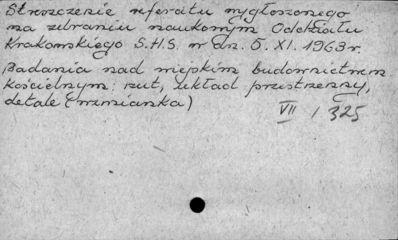 Streszczenie referatu wygłoszonego
na zebraniu naukowym Oddziału
Krakowskiego S.H.S. w dn. 5. XI. 1963 r.
Badania nad wiejskim budownictwem
kościelnym: rzut, układ przestrzenny,
detale (wzmianka)
VII / 325